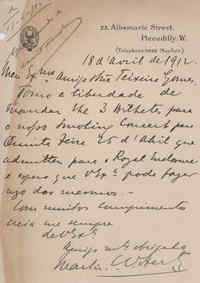 23, Albemarle Street,
Piccadilly, W.
(Telephone Mayfair)
18 d'Avril de 1912.
Meu Exmo Amigo Snr Teixeira Gomes,
Tomo a liberdade de
mandar lhe 3 bilhetes para
o nosso Smoking Concert para
Quinta feira 25 d'Abril que
admittem para o Royal
e espero que V Exa pode fazer
uzo dos mesmos.
Com muitos cumprimentos
creia me sempre
de V Exa
Amigo mto obrigado
Martin